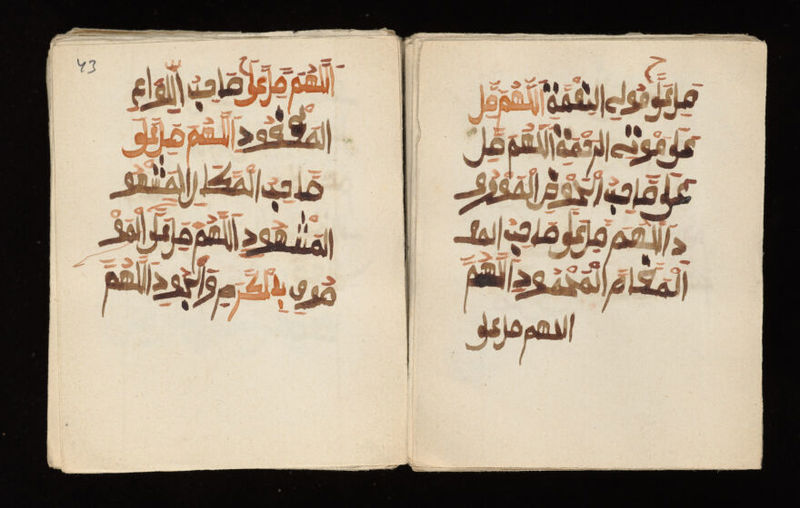 صل على مولي النعمة اللهم صل
على موتي الرحمة اللهم صل
على صاحب الحوض المورو
د اللهم صل على صاحب المق
المقام المحمود اللهم
اللهم صل على
43
اللهم صل على صاحب اللواء
المعقود اللهم صل على
صاحب المكان المشهو
المشهود اللهم صل على المو
صوف بالكرم والجود اللهم